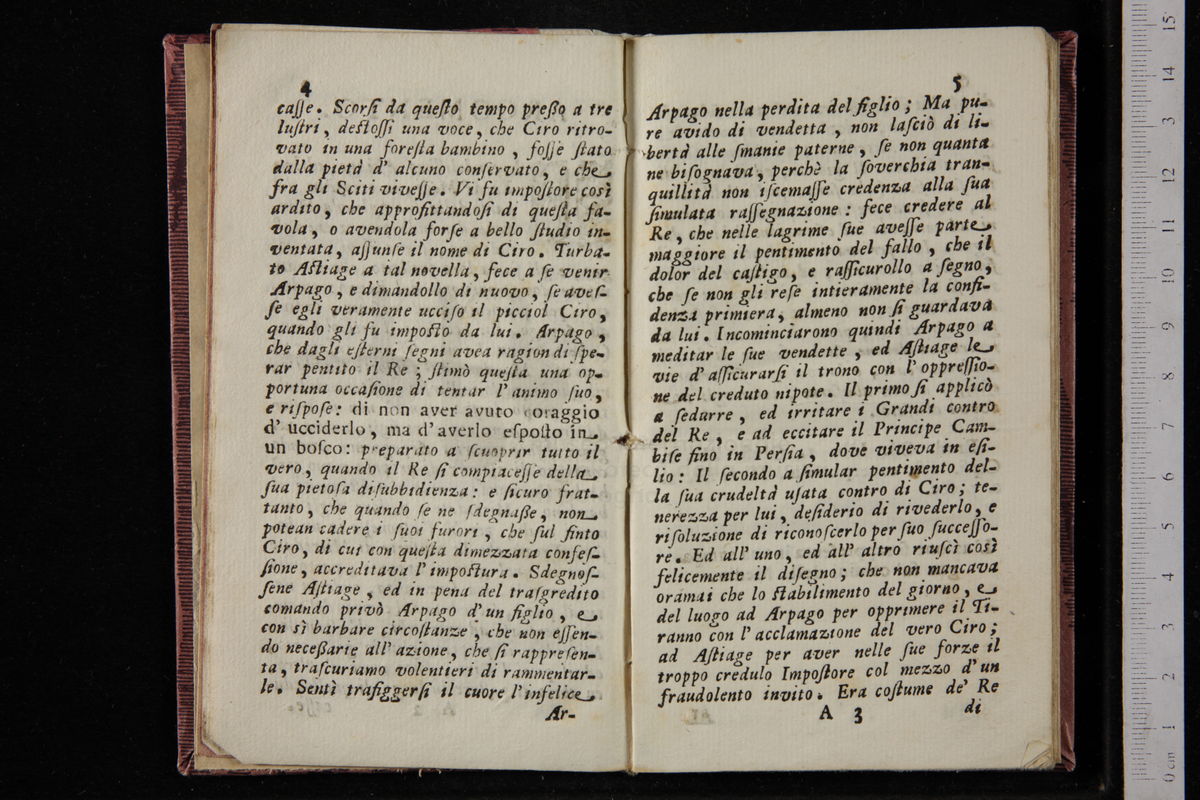 4
caſſe. Scorſi da queſto tempo preßo a tre
luſtri, deſtoſſi una voce, che Ciro ritro-
vato in una foreſta bambino, foſſe ſtato
dalla pietà d' alcuno conſervato, e che
fra gli Sciti viveſſe. Vi fu impoſtore così
ardito, che approfittandoſi di queſta fa-
vola, o avendola forſe a bello ſtudio in-
ventata, aſſunſe il nome di Ciro. Turba-
to Aſtiage a tal novella, fece a ſe venir
Arpago, e dimandollo di nuovo, ſe aveſ-
ſe egli veramente ucciſo il picciol Ciro,
quando gli fu impoſto da lui. Arpago,
che dagli eſterni ſegni avea ragion di ſpe-
rar pentito il Re; ſtimò queſta una op-
portuna occaſione di tentar l' animo ſuo,
e riſpoſe: di non aver avuto coraggio
d' ucciderlo, ma d' averlo eſpoſto in
un boſco: preparato a ſcuoprir tutto il
vero, quando il Re ſi compiaceſſe della
ſua pietoſa diſubbidienza: e ſicuro frat-
tanto, che quando ſe ne ſdegnaße, non
potean cadere i ſuoi furori, che ſul finto
Ciro, di cui con queſta dimezzata confeſ-
ſione, accreditava l' impoſtura. Sdegnoſ-
ſene Aſtiage, ed in pena del traſgredito
comando privò Arpago d' un figlio, e
con sì barbare circoſtanze, che non eſſen-
do neceßarie all' azione, che ſi rappreſen-
ta, traſcuriamo volentieri di rammentar-
le. Sentì trafiggerſi il cuore l' infelice
Ar-
5
Arpago nella perdita del figlio; Ma pu-
re avido di vendetta, non laſciò di li-
bertà alle ſmanie paterne, ſe non quanta
ne biſognava, perchè la ſoverchia tran-
quillità non iſcemaſſe credenza alla ſua
ſimulata raſſegnazione: fece credere al
Re, che nelle lagrime ſue aveſſe parte
maggiore il pentimento del fallo, che il
dolor del caſtigo, e raſſicurollo a ſegno,
che ſe non gli reſe intieramente la confi-
denza primiera, almeno non ſi guardava
da lui. Incominciarono quindi Arpago a
meditar le ſue vendette, ed Aſtiage le
vie d' aſſicurarſi il trono con l' oppreſſio-
ne del creduto nipote. Il primo ſi applicò
a ſedurre, ed irritare i Grandi contro
del Re, e ad eccitare il Principe Cam-
biſe fino in Perſia, dove viveva in eſi-
lio: Il ſecondo a ſimular pentimento del-
la ſua crudeltà uſata contro di Ciro; te-
nerezza per lui, deſiderio di rivederlo, e
riſoluzione di riconoſcerlo per ſuo ſucceſſo-
re. Ed all' uno, ed all' altro riuſcì così
felicemente il diſegno; che non mancava
oramai che lo ſtabilimento del giorno, e
del luogo ad Arpago per opprimere il Ti-
ranno con l' acclamazione del vero Ciro;
ad Aſtiage per aver nelle ſue forze il
troppo credulo Impoſtore col mezzo d' un
fraudolento invito. Era coſtume de' Re
A 3
di
0 cm 1 2 3 4 5 6 7 8 9 10 11 12 3 14 15